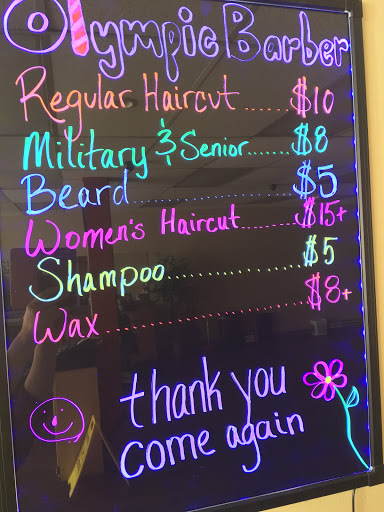 Olympic Barber
Regular Haircut ...... $10
Military & Senior....... $8
Beard .................... $5
Women's Haircut......... $15+
Shampoo................. $5
Wax........................ $8+
thank you
come again